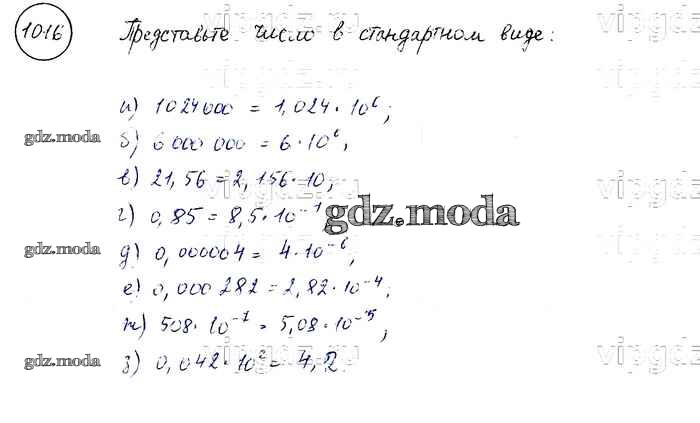 1016 Представьте число в стандартном виде:
а) 1024000 = 1,024 · 10⁶;
б) 6 000 000 = 6 · 10⁶,
в) 21,56 = 2,156 · 10;
г) 0,85 = 8,5 · 10⁻¹
д) 0,000004 = 4 · 10⁻⁶;
е) 0,000 282 = 2,82 · 10⁻⁴;
ж) 508 · 10⁻⁷ = 5,08 · 10⁻⁵;
з) 0,042 · 10² = 4,2
gdz.moda
gdz.moda
gdz.moda
gdz.moda
vipgdz
vipgdz
vipgdz
vipgdz
vipgdz
vipgdz
vipgdz